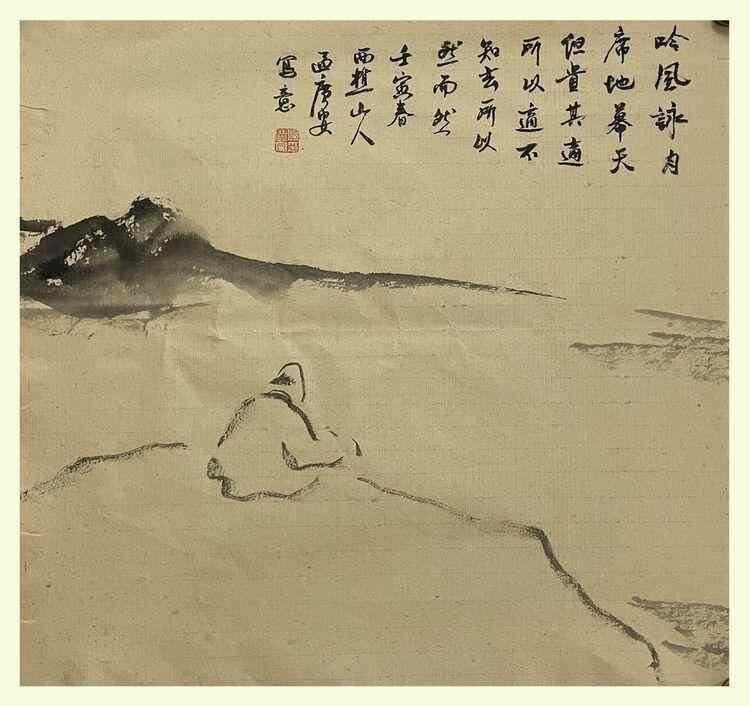 吟風詠月
席地幕天
但貴其適
所以適不
知去所以
然而然
壬寅春
西樵山人
區廣安
寫意